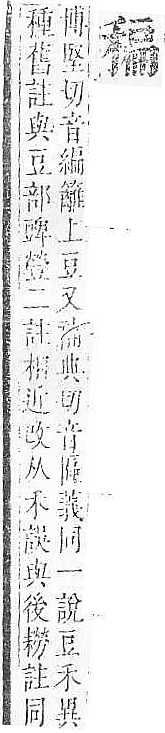 稨
博堅切音編籬上豆又補典切音匾義同一說豆禾異
種舊註與豆部豍二註相近改从禾誤與後註同